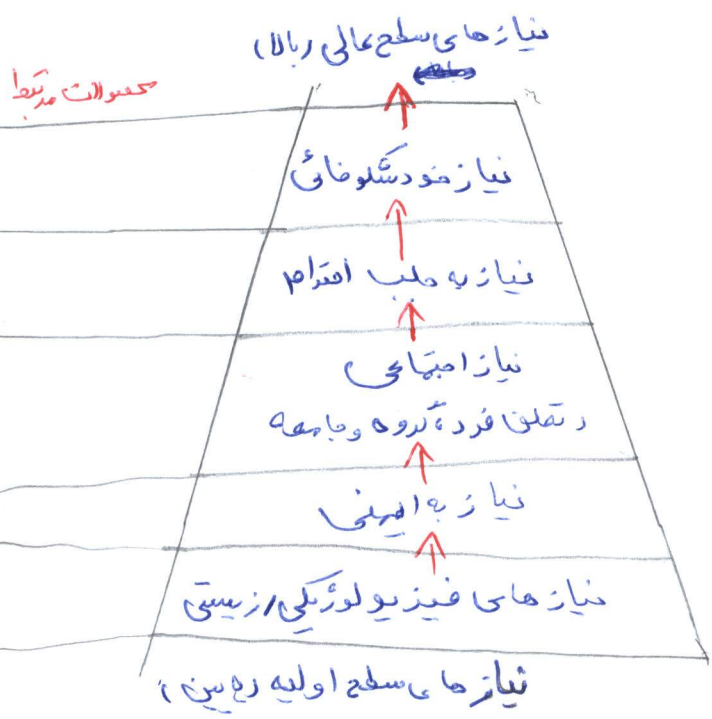 نیازهای سطح عالی (بالا)
محصولات مرتبط
نیاز خودشکوفائی
نیاز به جلب احترام
نیاز اجتماعی
(تعلق فرد، گروه و جامعه
نیاز به ایمنی
نیازهای فیزیولوژیکی/زیستی
نیازهای سطح اولیه (پایین)